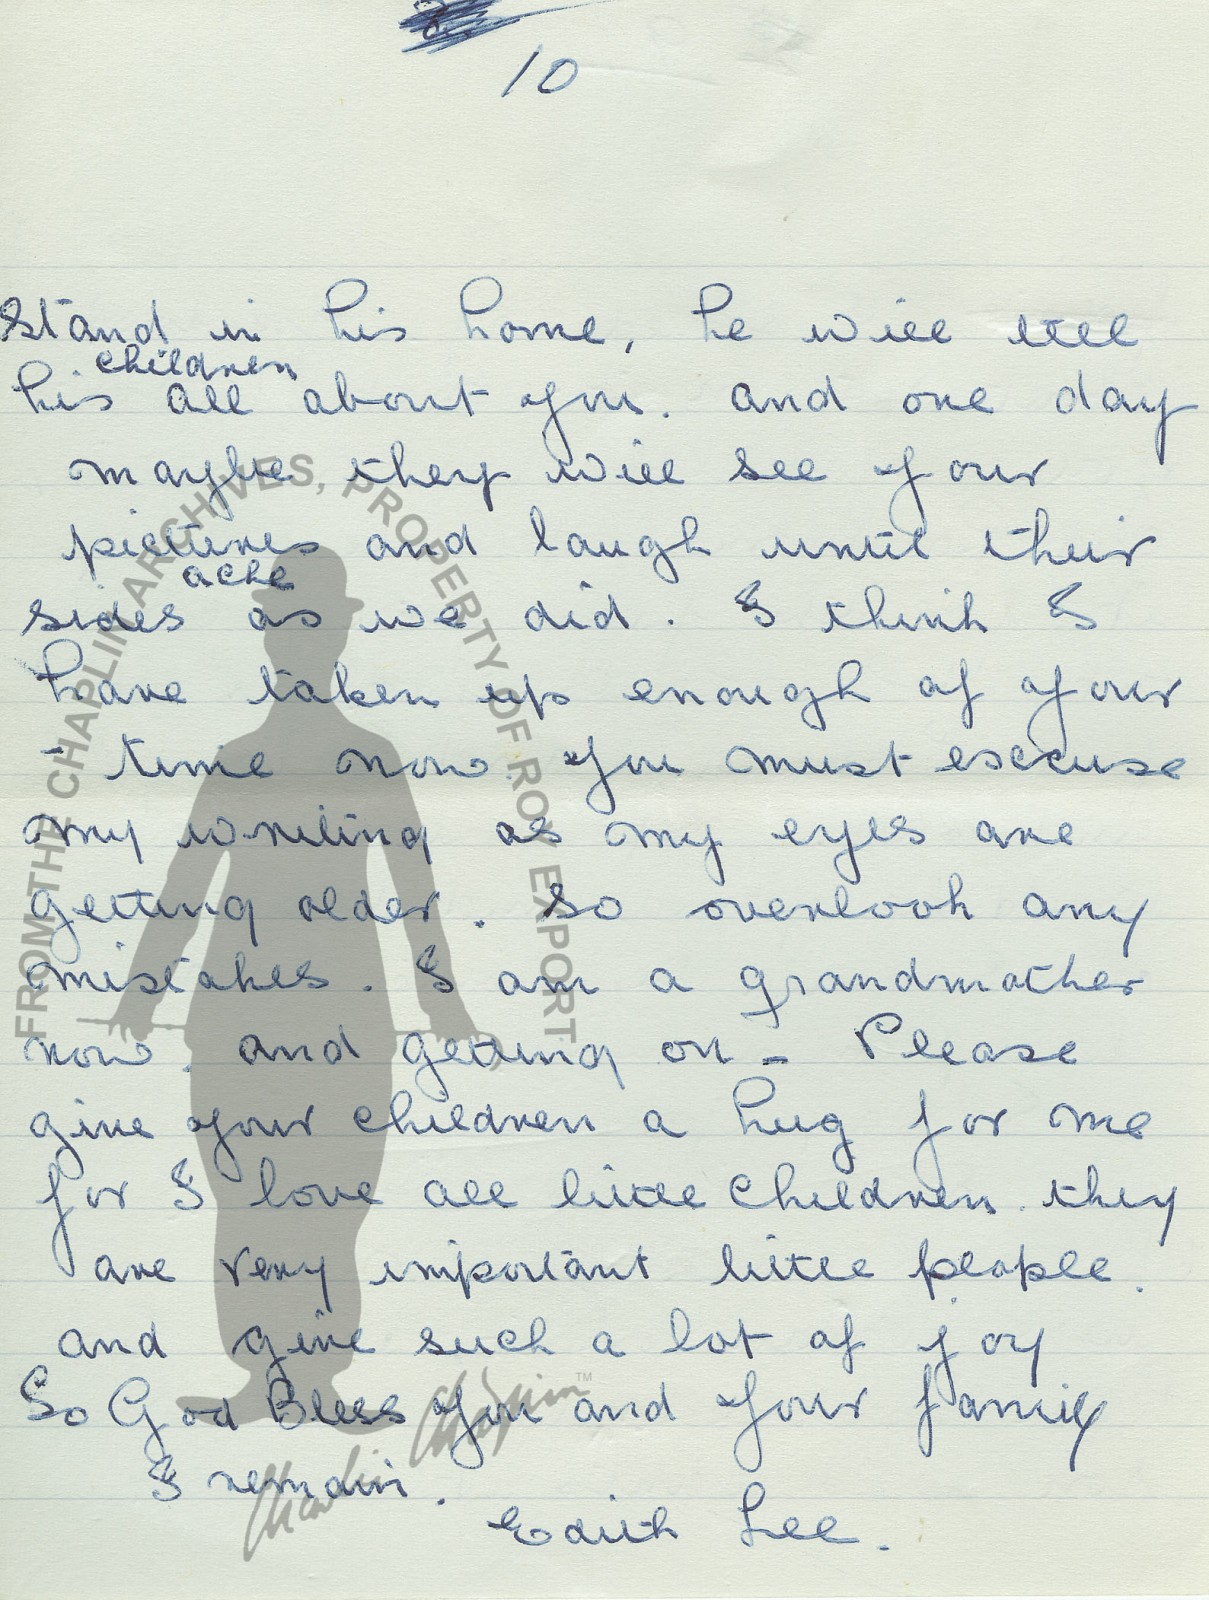 10
stand in his home, he will tell
children
his all about you. and one day
maybe they will see your
pictures and laugh until their
ache
sides as we did. I think I
have taken up enough of your
time now. you must exccuse
my writing as my eyes are
getting older. so overlook any
mistakes. I am a grandmother
now. and getting on - Please
give your children a hug for me
for I love all little children. they
are very important little people.
and give such a lot of joy
So God Bless you and your family
I remain.
Edith Lee.
FROM THE CHAPLIN ARCHIVES, PROPERTY OF ROY EXPORT
Charlie Chaplin™